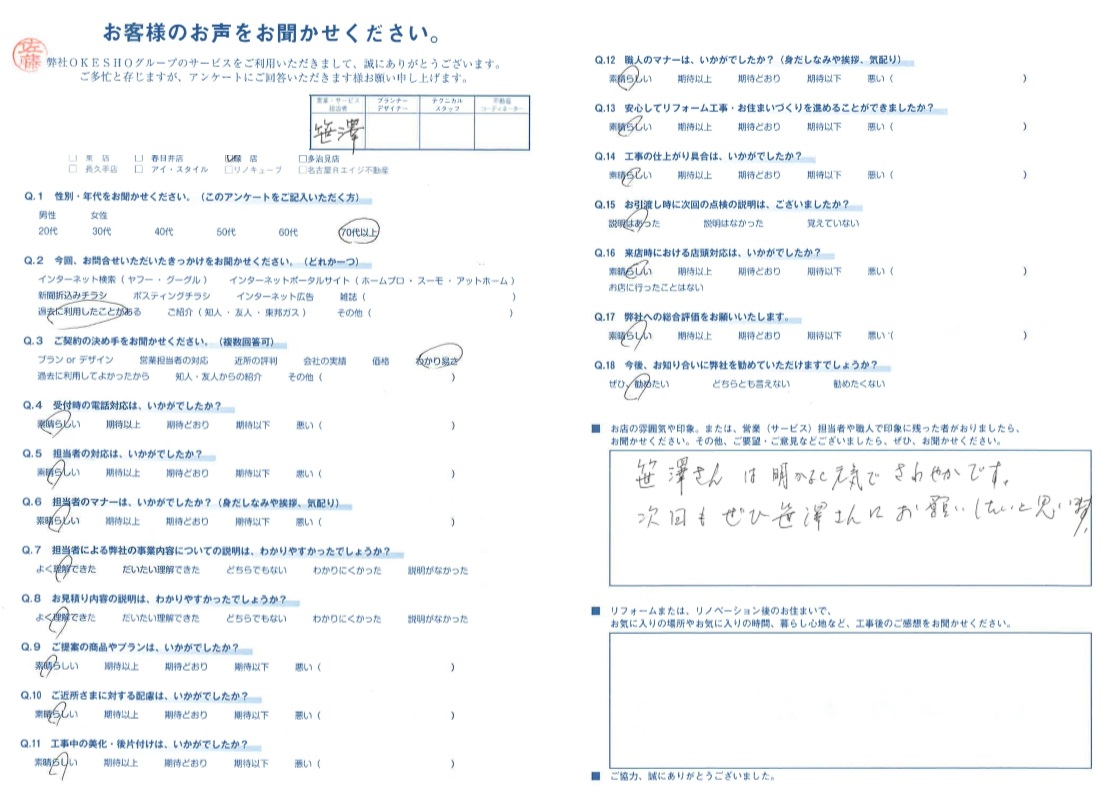 お客様のお声をお聞かせください。
佐藤
弊社OKESHOグループのサービスをご利用いただきまして、誠にありがとうございます。
ご多忙と存じますが、アンケートにご回答いただきます様お願い申し上げます。
営業・サービス担当者 プランナーデザイナー テクニカルスタッフ 不動産コーディネーター
笹澤
□ 東 店 □ 春日井店 店 □多治見店
□ 長久手店 □ アイ・スタイル □リノキューブ □名古屋Rエイジ不動産
Q.1 性別・年代をお聞かせください。（このアンケートをご記入いただく方）
男性 女性
20代 30代 40代 50代 60代 70代以上
Q.2 今回、お問合せいただいたきっかけをお聞かせください。（どれか一つ）
インターネット検索（ ヤフー ・ グーグル ） インターネットポータルサイト（ ホームプロ ・ スーモ ・ アットホーム ）
新聞折込みチラシ ポスティングチラシ インターネット広告 雑誌（ ）
過去に利用したことがある ご紹介（ 知人 ・ 友人 ・ 東邦ガス ） その他（ ）
Q.3 ご契約の決め手をお聞かせください。（複数回答可）
プラン or デザイン 営業担当者の対応 近所の評判 会社の実績 価格 わかり易さ
過去に利用してよかったから 知人・友人からの紹介 その他（ ）
Q.4 受付時の電話対応は、いかがでしたか？
素晴らしい 期待以上 期待どおり 期待以下 悪い（ ）
Q.5 担当者の対応は、いかがでしたか？
素晴らしい 期待以上 期待どおり 期待以下 悪い（ ）
Q.6 担当者のマナーは、いかがでしたか？（身だしなみや挨拶、気配り）
素晴らしい 期待以上 期待どおり 期待以下 悪い（ ）
Q.7 担当者による弊社の事業内容についての説明は、わかりやすかったでしょうか？
よく理解できた だいたい理解できた どちらでもない わかりにくかった 説明がなかった
Q.8 お見積り内容の説明は、わかりやすかったでしょうか？
よく理解できた だいたい理解できた どちらでもない わかりにくかった 説明がなかった
Q.9 ご提案の商品やプランは、いかがでしたか？
素晴らしい 期待以上 期待どおり 期待以下 悪い（ ）
Q.10 ご近所さまに対する配慮は、いかがでしたか？
素晴らしい 期待以上 期待どおり 期待以下 悪い（ ）
Q.11 工事中の美化・後片付けは、いかがでしたか？
素晴らしい 期待以上 期待どおり 期待以下 悪い（ ）
Q.12 職人のマナーは、いかがでしたか？（身だしなみや挨拶、気配り）
素晴らしい 期待以上 期待どおり 期待以下 悪い（ ）
Q.13 安心してリフォーム工事・お住まいづくりを進めることができましたか？
素晴らしい 期待以上 期待どおり 期待以下 悪い（ ）
Q.14 工事の仕上がり具合は、いかがでしたか？
素晴らしい 期待以上 期待どおり 期待以下 悪い（ ）
Q.15 お引渡し時に次回の点検の説明は、ございましたか？
説明はあった 説明はなかった 覚えていない
Q.16 来店時における店頭対応は、いかがでしたか？
素晴らしい 期待以上 期待どおり 期待以下 悪い（ ）
お店に行ったことはない
Q.17 弊社への総合評価をお願いいたします。
素晴らしい 期待以上 期待どおり 期待以下 悪い（ ）
Q.18 今後、お知り合いに弊社を勧めていただけますでしょうか？
ぜひ、勧めたい どちらとも言えない 勧めたくない
■ お店の雰囲気や印象。または、営業（サービス）担当者や職人で印象に残った者がおりましたら、
お聞かせください。その他、ご要望・ご意見などございましたら、ぜひ、お聞かせください。
笹澤さん は 明かるく元気で さわやかです。
次回も ぜひ 笹澤さんに お願いしたいと思います。
■ リフォームまたは、リノベーション後のお住まいで、
お気に入りの場所やお気に入りの時間、暮らし心地など、工事後のご感想をお聞かせください。
■ ご協力、誠にありがとうございました。